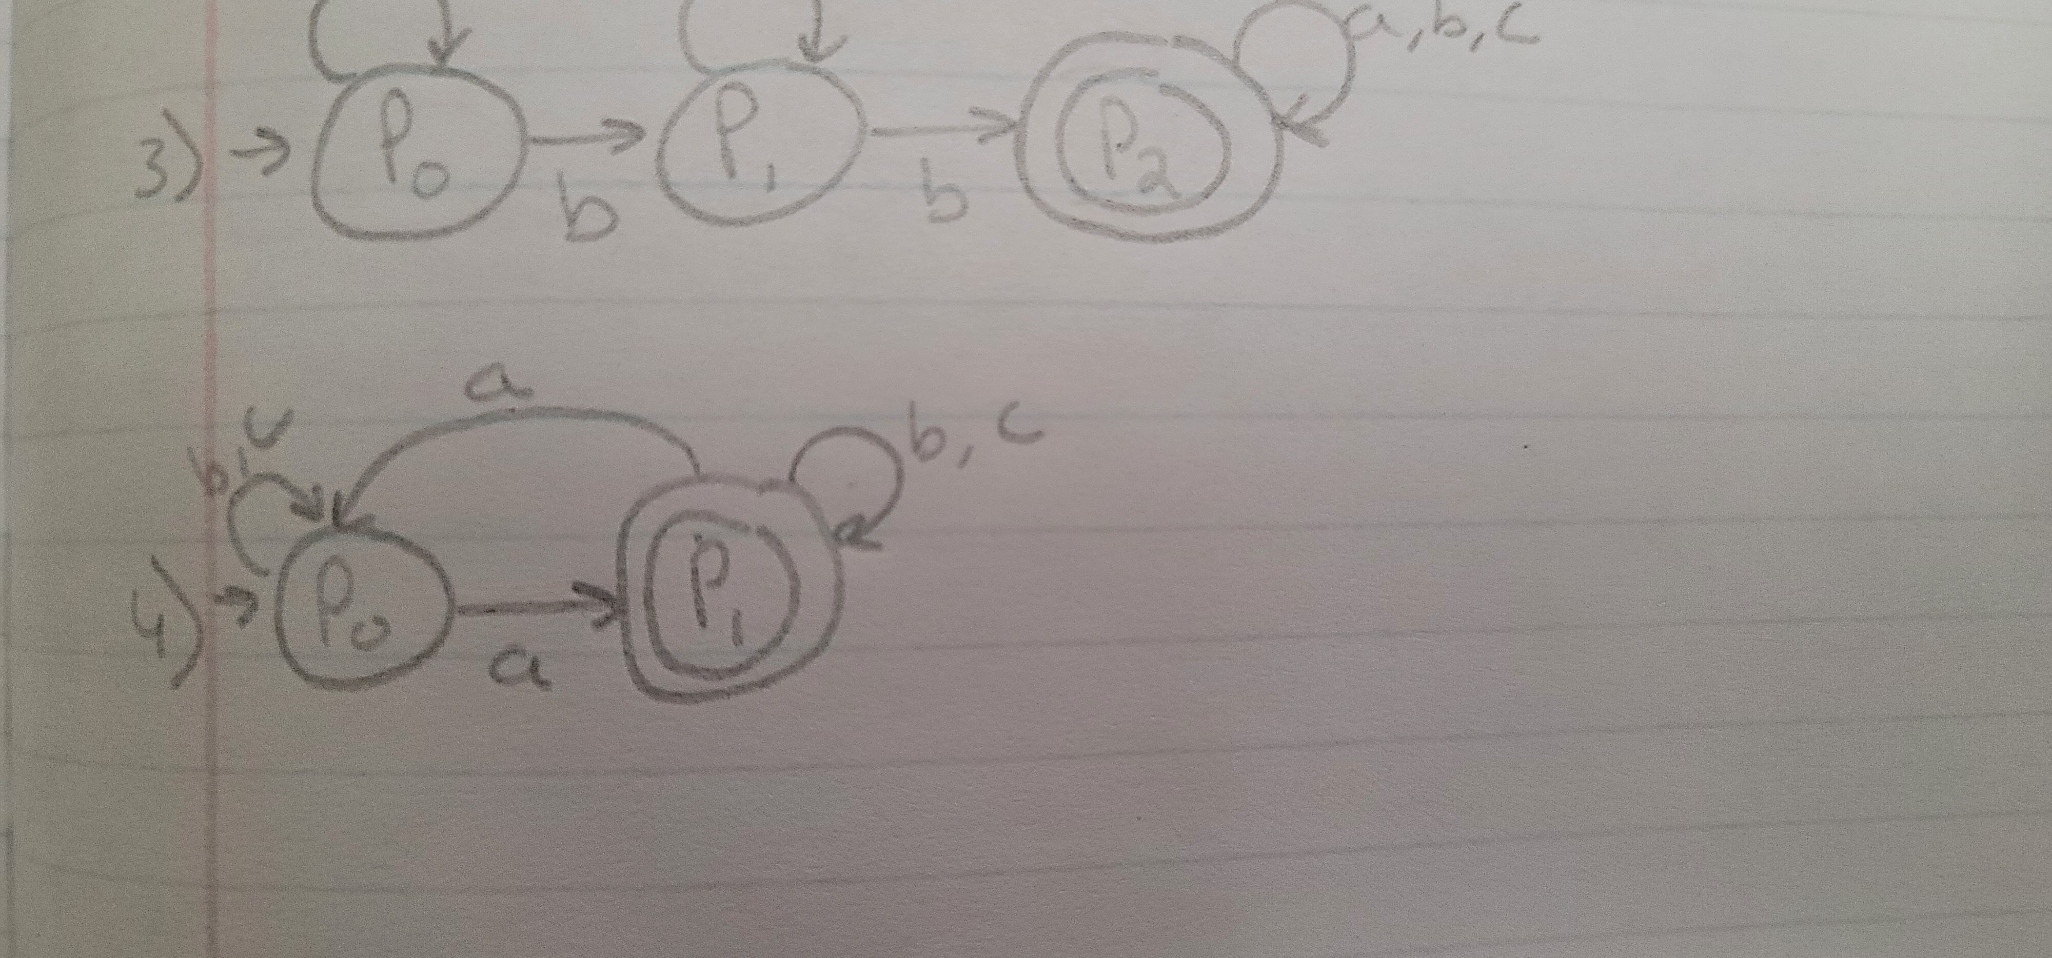 3) P0 b P1 b P2 a, b, c
4) b, c a
P0 a P1 b, c